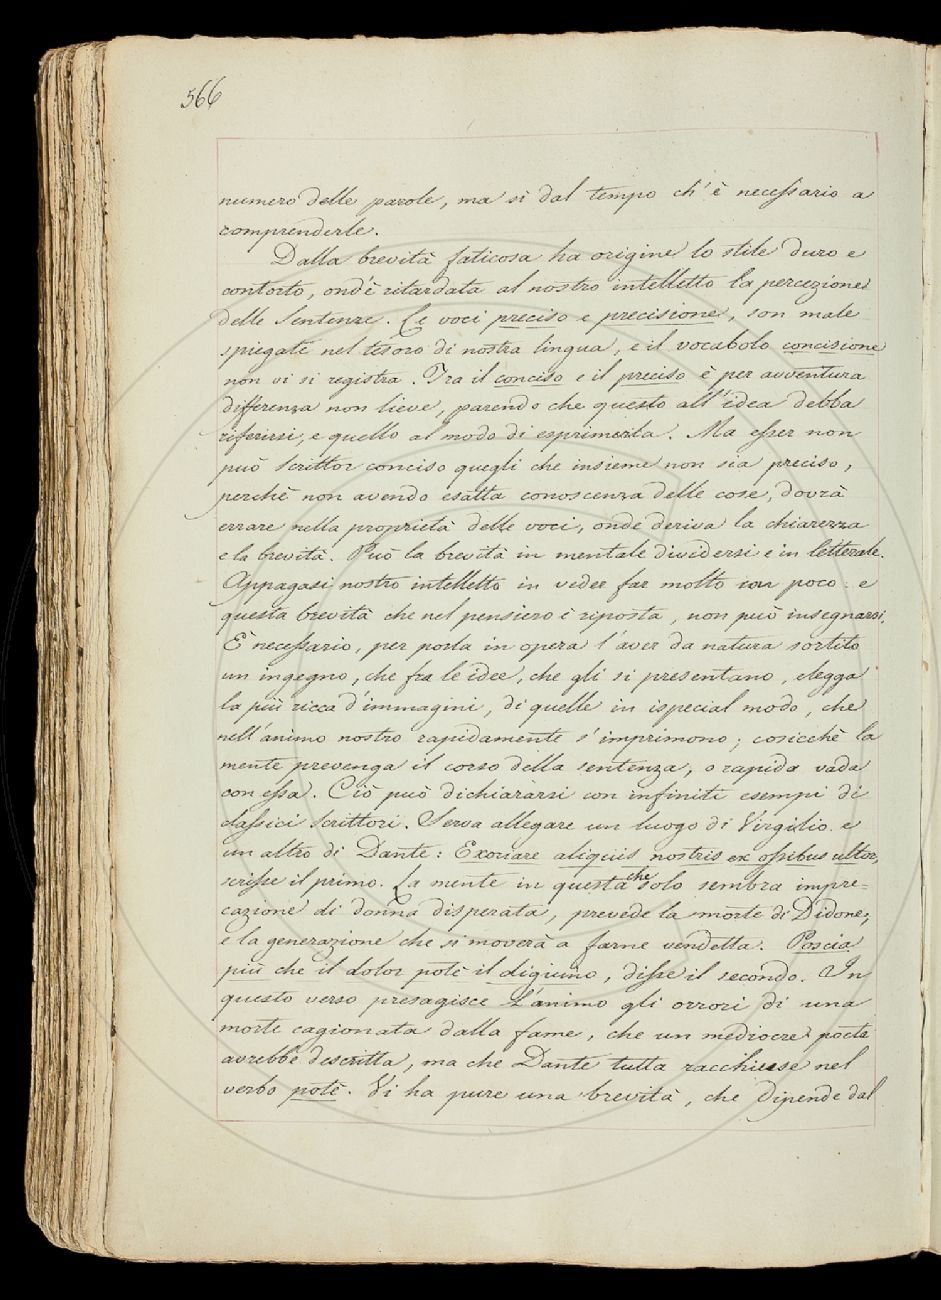 566
numero delle parole, ma sì dal tempo ch'è necessario a
comprenderle.
Dalla brevità faticosa ha origine lo stile duro e
contorto, ond'è ritardata al nostro intelletto la percezione
delle Sentenze. Le voci preciso e precisione, son male
spiegate nel tesoro di nostra lingua, e il vocabolo concisione
non vi si registra. Tra il conciso e il preciso è per avventura
differenza non lieve, parendo che questo all'idea debba
riferirsi, e quello al modo di esprimerla. Ma esser non
può Scrittor conciso quegli che insieme non sia preciso,
perchè non avendo esatta conoscenza delle cose, dovrà
errare nella proprietà delle voci, onde deriva la chiarezza
e la brevità. Può la brevità in mentale dividersi e in letterale.
Appagasi nostro intelletto in veder far molto con poco: e
questa brevità che nel pensiero è riposta, non può insegnarsi.
È necessario, per porla in opera l'aver da natura sortito
un ingegno, che fra le idee, che gli si presentano, elegga
la più ricca d'immagini, di quelle in ispecial modo, che
nell'animo nostro rapidamente s'imprimono; cosicchè la
mente prevenga il corso della sentenza, o rapida vada
con essa. Ciò può dichiararsi con infiniti esempi di
classici Scrittori. Serva allegare un luogo di Virgilio e
un altro di Dante: Exoriare aliquis nostris ex ossibus ultor,
scrisse il primo. La mente in questa che solo sembra impre=
cazione di donna disperata, prevede la morte di Didone,
e la generazione che si moverà a farne vendetta. Poscia
più che il dolor potè il digiuno, disse il secondo. In
questo verso presagisce l'animo gli orrori di una
morte cagionata dalla fame, che un mediocre poeta
avrebbe descritta, ma che Dante tutta racchiuse nel
verbo potè. Vi ha pure una brevità, che dipende dal